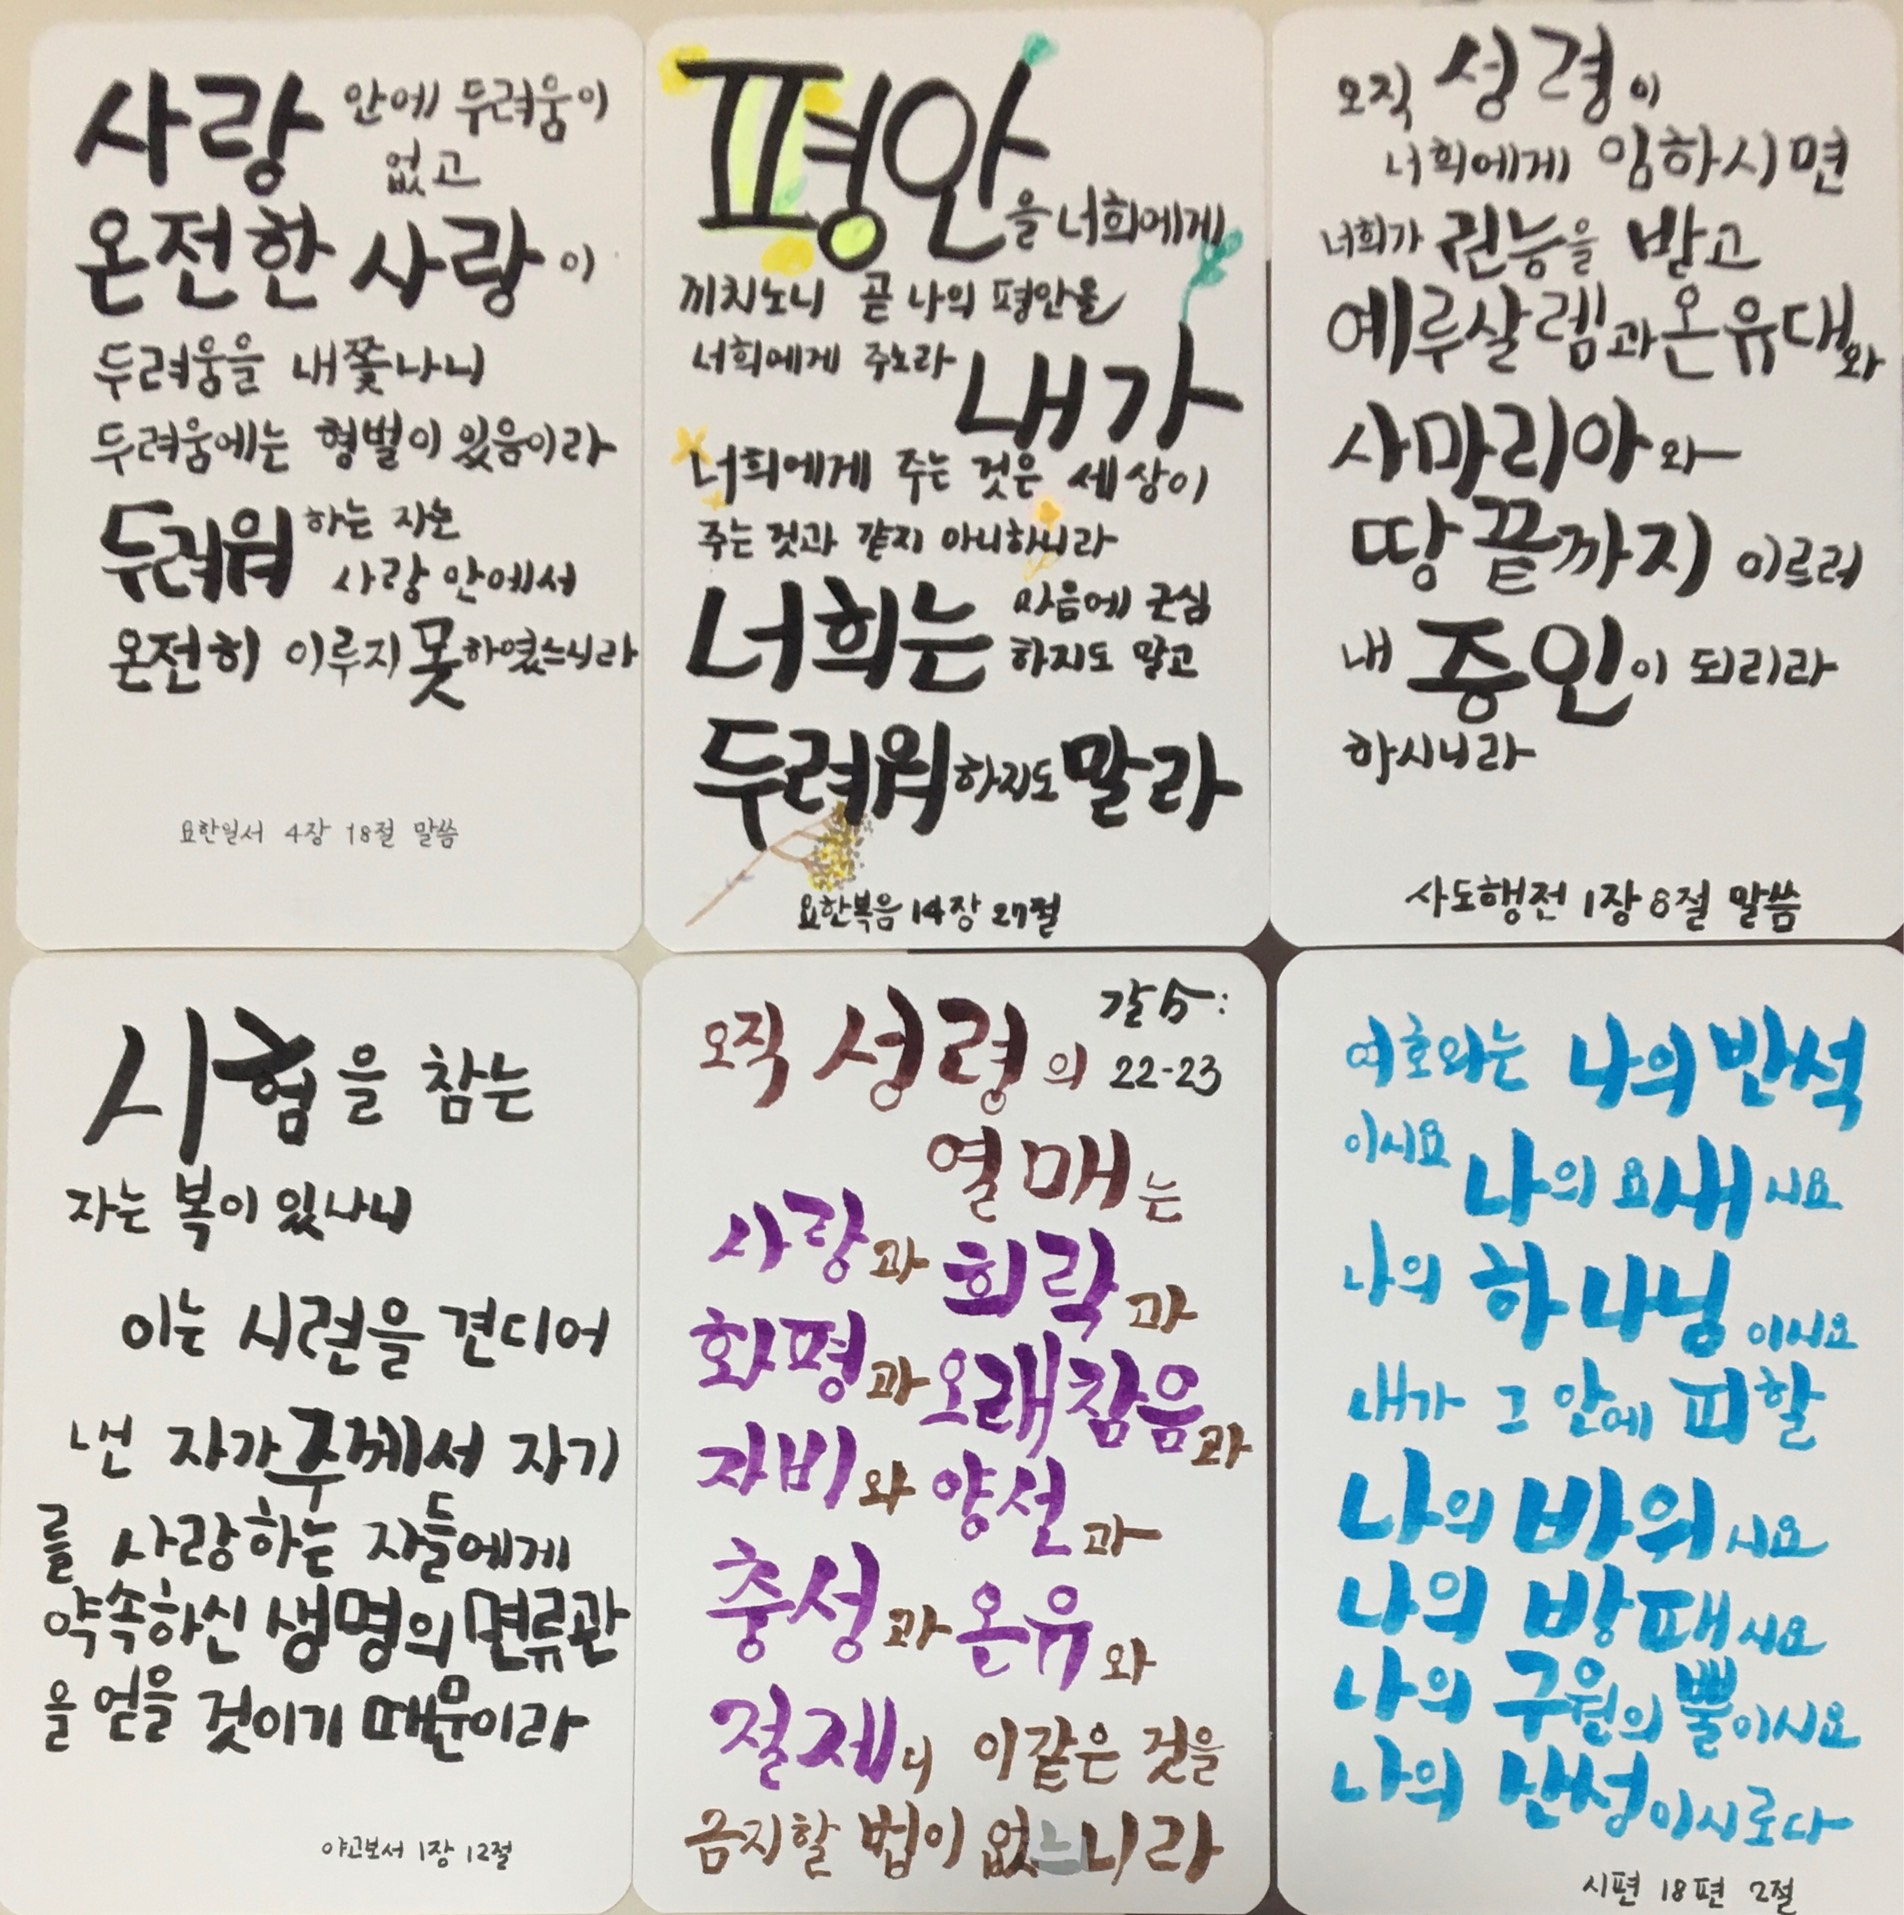 사랑 안에 두려움이
없고
온전한 사랑이
두려움을 내쫓나니
두려움에는 형벌이 있음이라
두려워하는 자는
사랑 안에서
온전히 이루지 못하였느니라
요한일서 4장 18절 말씀
평안을 너희에게
끼치노니 곧 나의 평안을
너희에게 주노라 내가
너희에게 주는 것은 세상이
주는 것과 같지 아니하니라
너희는 마음에 근심
하지도 말고
두려워하지도 말라
요한복음 14장 27절
오직 성령이
너희에게 임하시면
너희가 권능을 받고
예루살렘과 온유대와
사마리아와
땅끝까지 이르러
내 증인이 되리라
하시니라
사도행전 1장 8절 말씀
시험을 참는
자는 복이 있나니
이는 시련을 견디어
낸 자가 주께서 자기
를 사랑하는 자들에게
약속하신 생명의 면류관
을 얻을 것이기 때문이라
야고보서 1장 12절
오직 성령의
갈 5:
22-23
열매는
사랑과 희락과
화평과 오래참음과
자비와 양선과
충성과 온유와
절제니 이같은 것을
금지할 법이 없느니라
여호와는 나의 반석
이시요 나의 요새시요
나의 하나님이시요
내가 그 안에 피할
나의 바위시요
나의 방패시요
나의 구원의 뿔이시요
나의 산성이시로다
시편 18편 2절